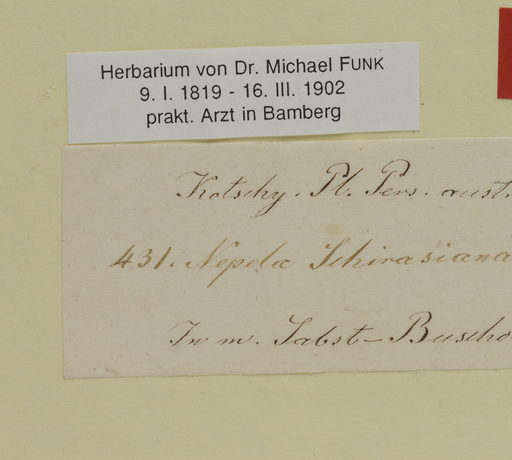 Herbarium von Dr. Michael FUNK
9. I. 1819 - 16. III. 1902
prakt. Arzt in Bamberg
Kotschy. Pl. Pers. aust.
431. Nepeta Schirasiana
In m. Sabst-Buscho